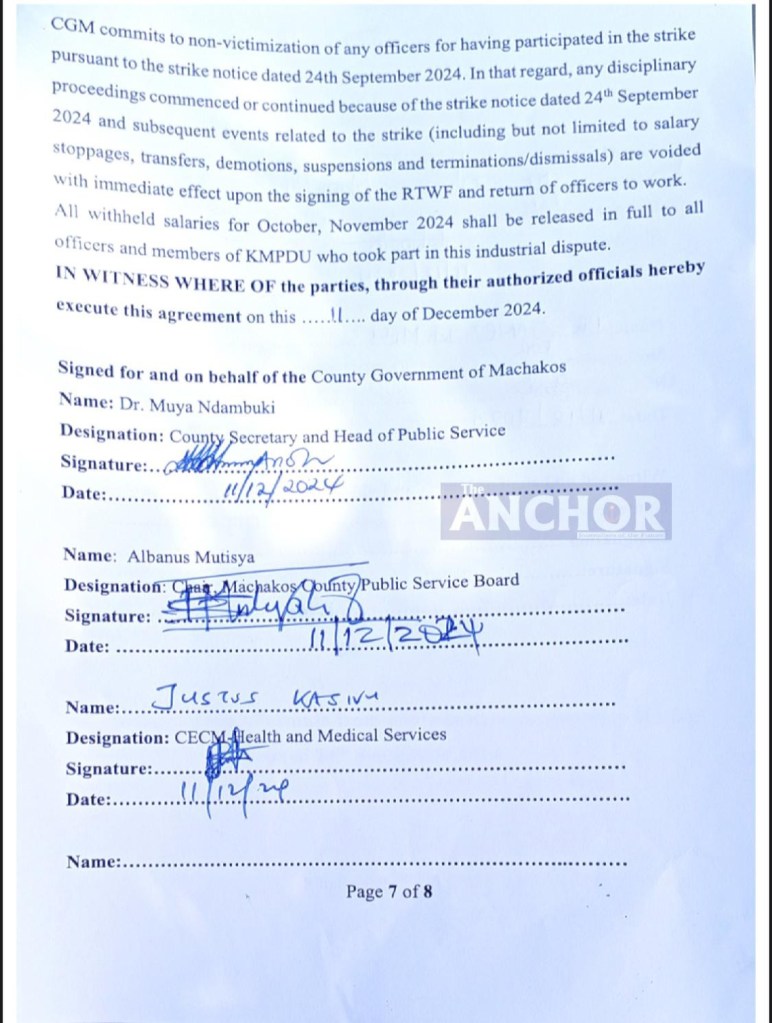 CGM commits to non-victimization of any officers for having participated in the strike
pursuant to the strike notice dated 24th September 2024. In that regard, any disciplinary
proceedings commenced or continued because of the strike notice dated 24th September
2024 and subsequent events related to the strike (including but not limited to salary
stoppages, transfers, demotions, suspensions and terminations/dismissals) are voided
with immediate effect upon the signing of the RTWF and return of officers to work.
All withheld salaries for October, November 2024 shall be released in full to all
officers and members of KMPDU who took part in this industrial dispute.
IN WITNESS WHERE OF the parties, through their authorized officials hereby
execute this agreement on this .....11.... day of December 2024.
Signed for and on behalf of the County Government of Machakos
Name: Dr. Muya Ndambuki
Designation: County Secretary and Head of Public Service
Signature:
Date: 11/12/2024
The
ANCHOR
Name: Albanus Mutisya
Designation: Chair, Machakos County Public Service Board
Signature:
Date: 11/12/2024
Name: JUSTUS KASIVU
Designation: CECM-Health and Medical Services
Signature:
Date: 11/12/24
Name:
Page 7 of 8